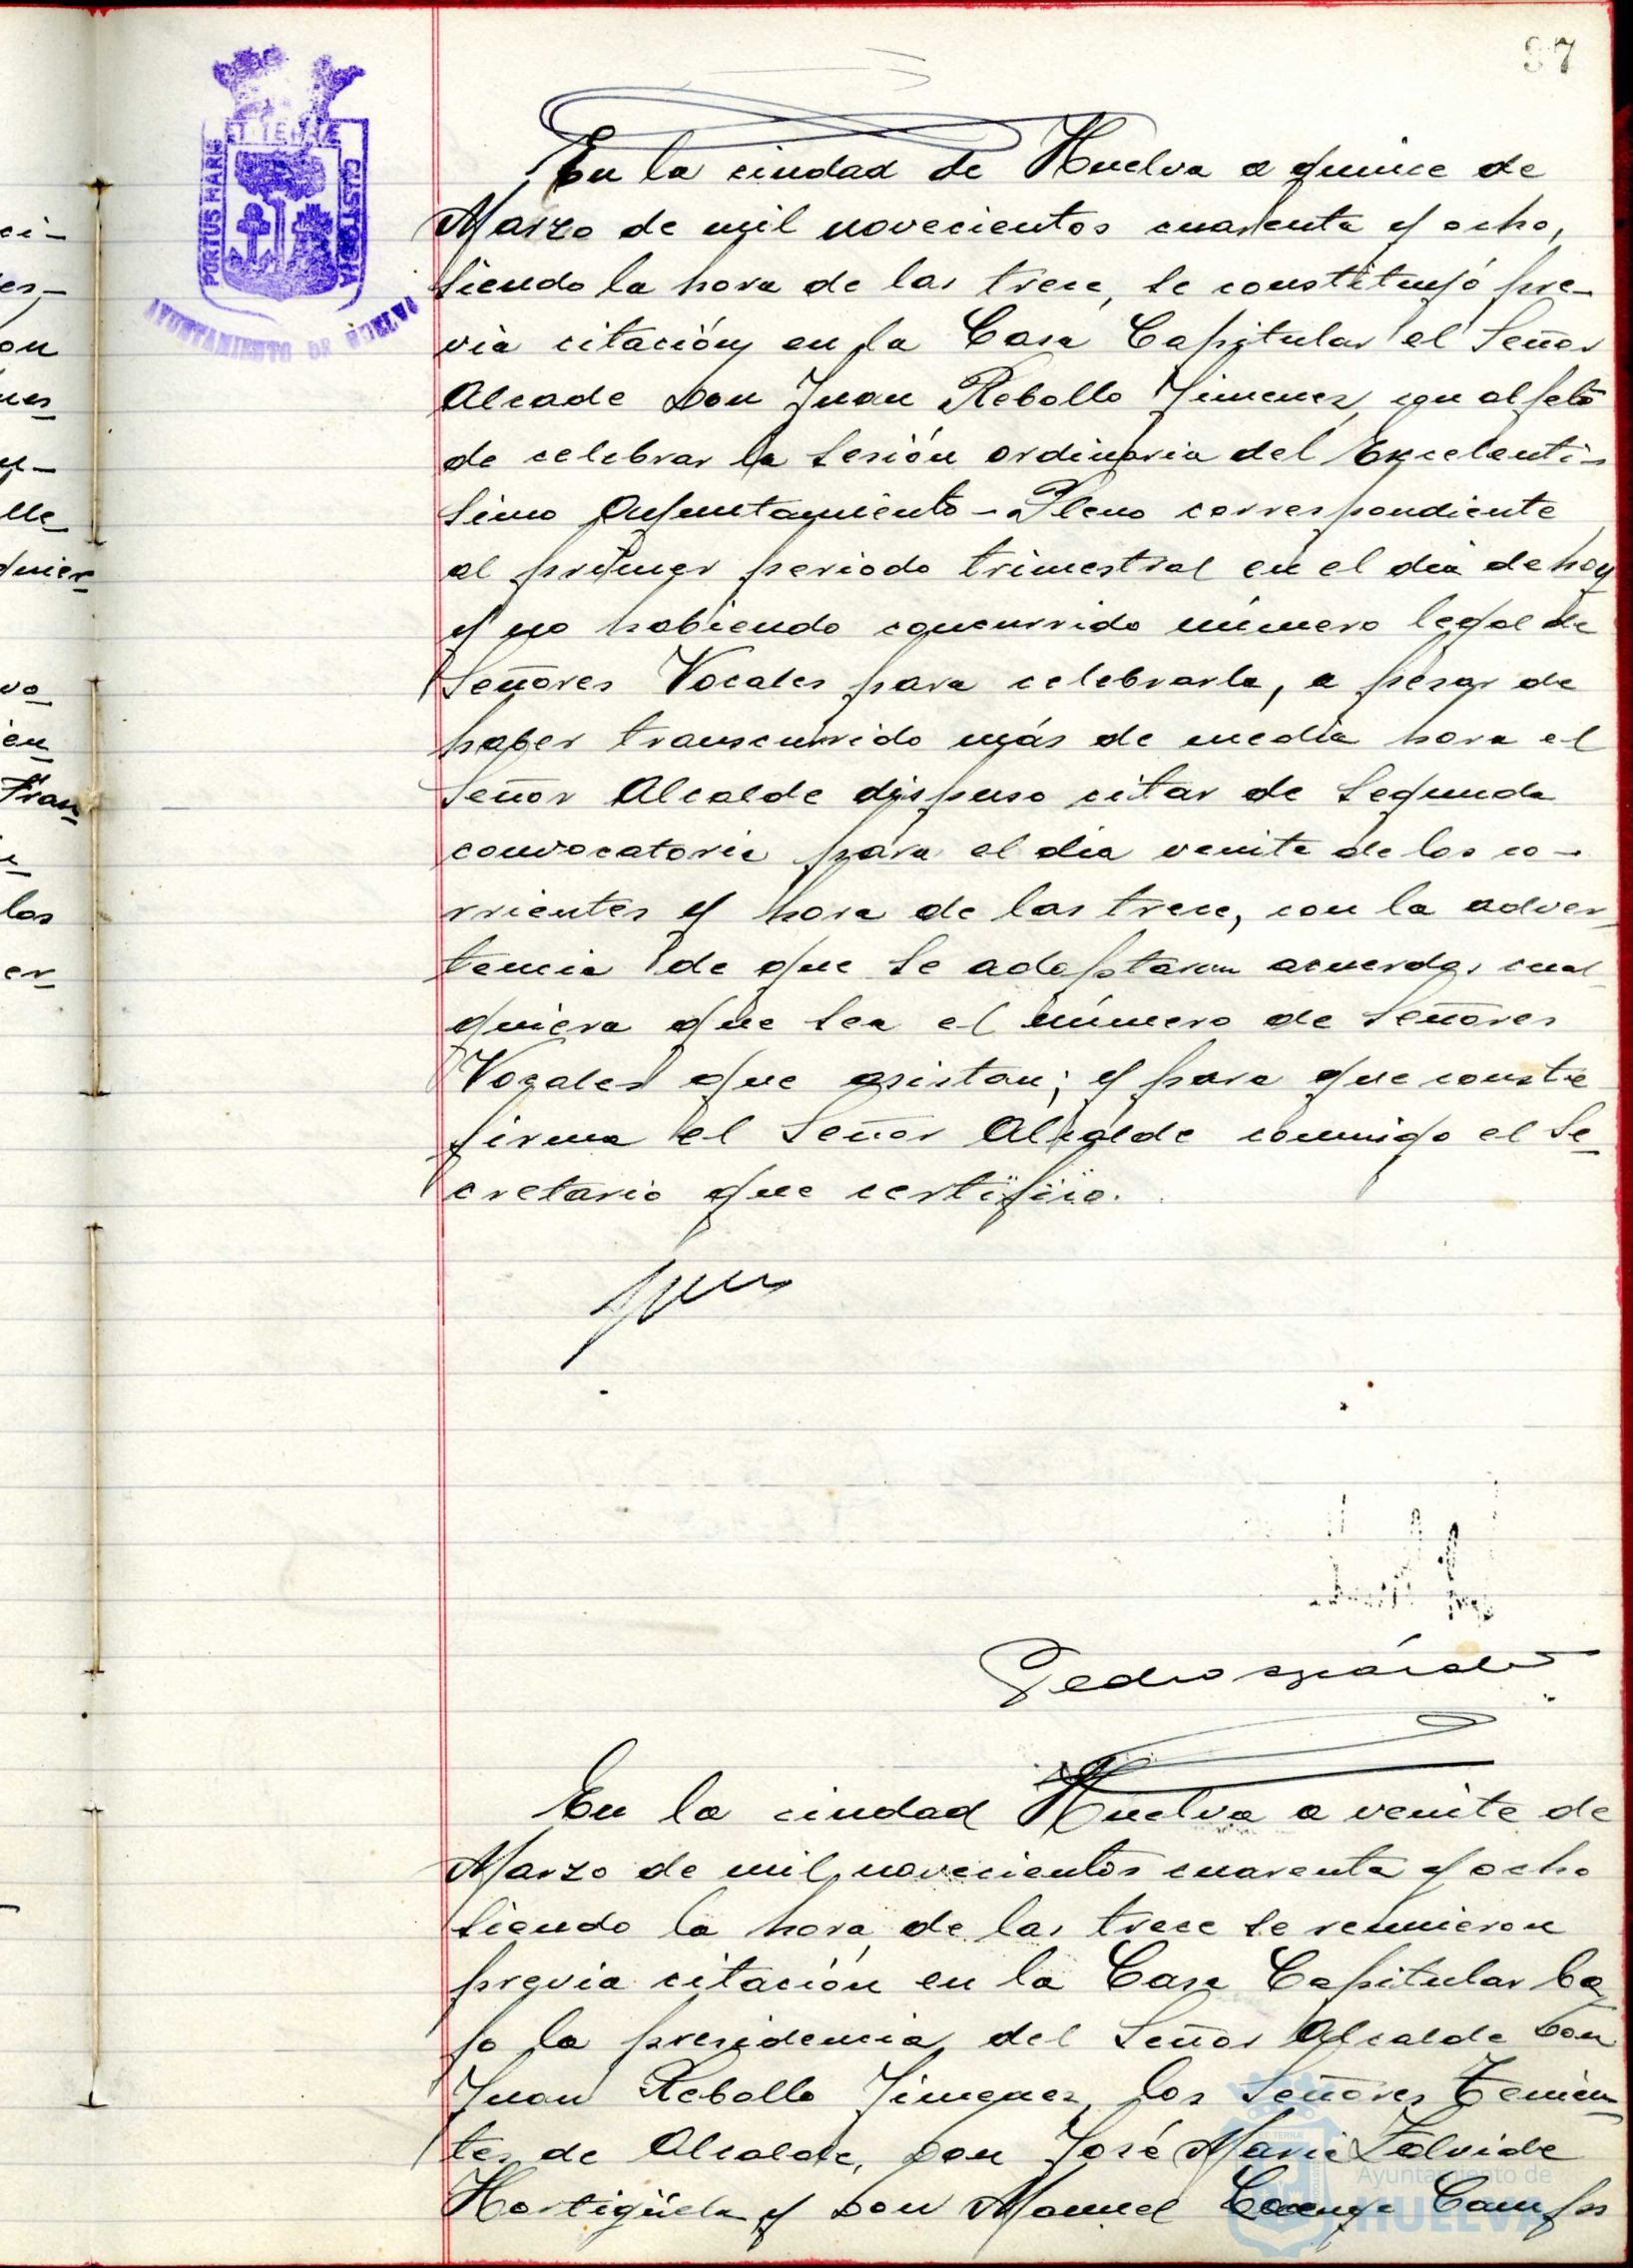 97
PORTUS MARIS
ET TERRAE
CUSTODIA
AYUNTAMIENTO DE HUELVA
En la ciudad de Huelva a quince de
Marzo de mil novecientos cuarenta y ocho,
siendo la hora de las trece, se constituyó pre-
via citación en la Casa Capitular el Señor
Alcade Don Juan Rebollo Jimenez, con objeto
de celebrar la Sesión ordinaria del Excelenti-
simo Ayuntamiento-Pleno correspondiente
al primer periodo trimestral en el dia de hoy
y no habiendo concurrido número legal de
Señores Vocales para celebrarla, a pesar de
haber transcurrido más de media hora el
Señor Alcalde dispuso citar de segunda
convocatoria para el dia veinte de los co-
rrientes y hora de las trece, con la adver-
tencia de que se adoptaran acuerdos cual
quiera que sea el número de Señores
Vocales que asistan; y para que conste
firma el Señor Alcalde conmigo el Se-
cretario que certifico.
Pedro
En la ciudad Huelva a veinte de
Marzo de mil novecientos cuarenta y ocho
siendo la hora de las trece se reunieron
previa citación en la Casa Capitular ba
jo la presidencia del Señor Alcalde Don
Juan Rebollo Jimenez, los Señores Tenien-
tes de Alcalde, Don José Maria
Hortigüela y Don Manuel
Ayuntamiento de
HUELVA
ci-
es-
on
lle
quier
vo
en
Fran
los
er